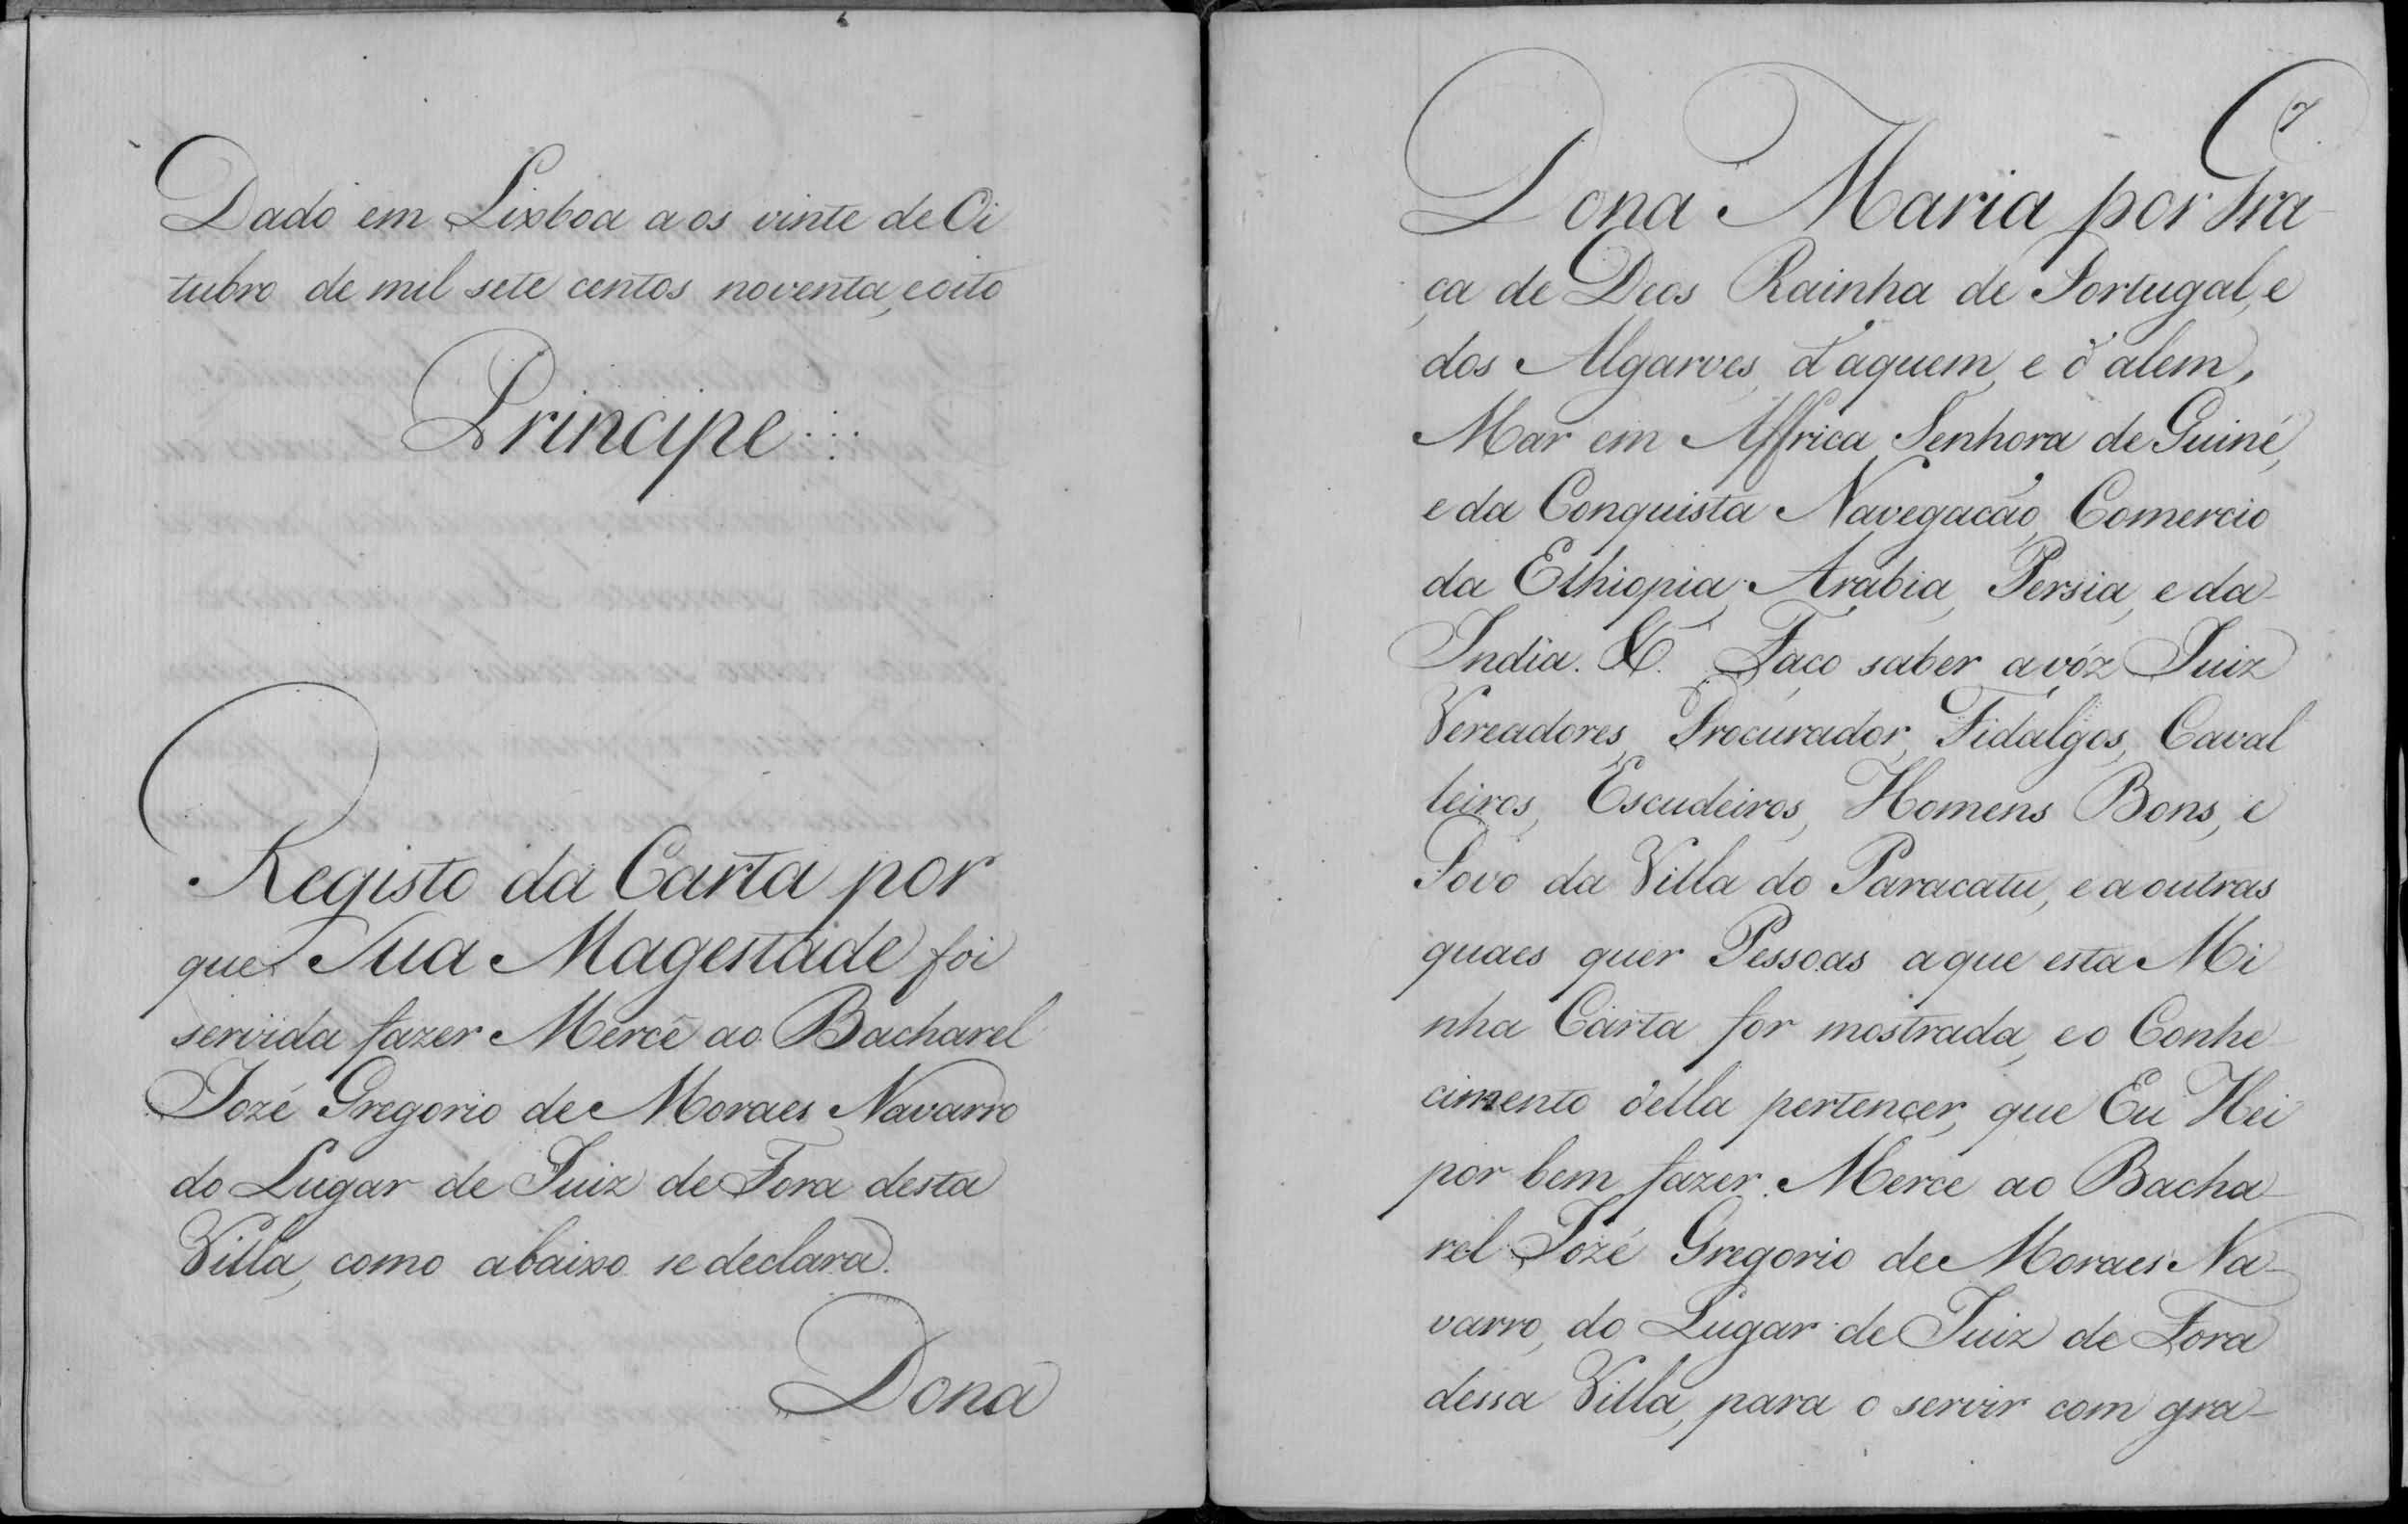 Dado em Lixboa a os vinte de Oi
tubro de mil sete centos noventa, e oito
Principe...
Registo da Carta por
que Sua Magestade foi
servida fazer Mercê ao Bacharel
Jozé Gregorio de Moraes Navarro
do Lugar de Juiz de Fora desta
Villa, como abaixo se declara.
Dona
7
Dona Maria por Gra-
ça de Deos Rainha de Portugal, e
dos Algarves, d'aquem, e d'alem,
Mar em Affrica, Senhora de Guiné,
e da Conquista Navegação, Comercio
da Ethiopia, Arabia, Persia, e da
India. &.ª Faço saber a vóz Juiz
Vereadores, Procurador, Fidalgos, Caval
leiros, Escudeiros, Homens Bons, e
Povo da Villa do Paracatu, e a outras
quaes quer Pessoas a que esta Mi
nha Carta for mostrada, e o Conhe
cimento d'ella pertencer, que Eu Hei
por bem fazer Merce ao Bacha-
rel Jozé Gregorio de Moraes Na-
varro, do Lugar de Juiz de Fora
dessa Villa, para o servir com gra-